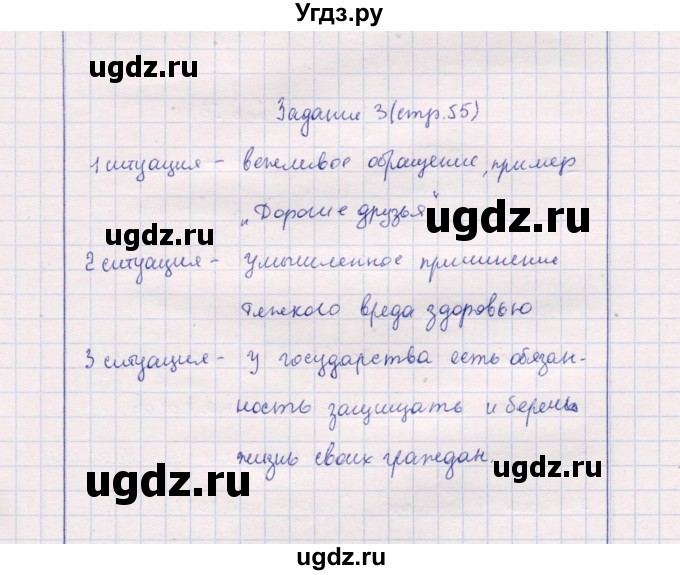 Угдз.ру
ugdz.ru
Задание 3 (стр. 55)
1 ситуация - вежливое обращение, пример
„Дорогие друзья"
ugdz.ru
ugdz.ru
2 ситуация - умышленное причинение
тяжкого вреда здоровью
3 ситуация - у государства есть обязан-
ность защищать и беречь
жизнь своих граждан.
ugdz.ru
ugdz.ru
ugdz.ru